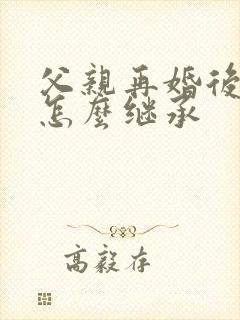 父親再婚後
怎麼继承
高毅存